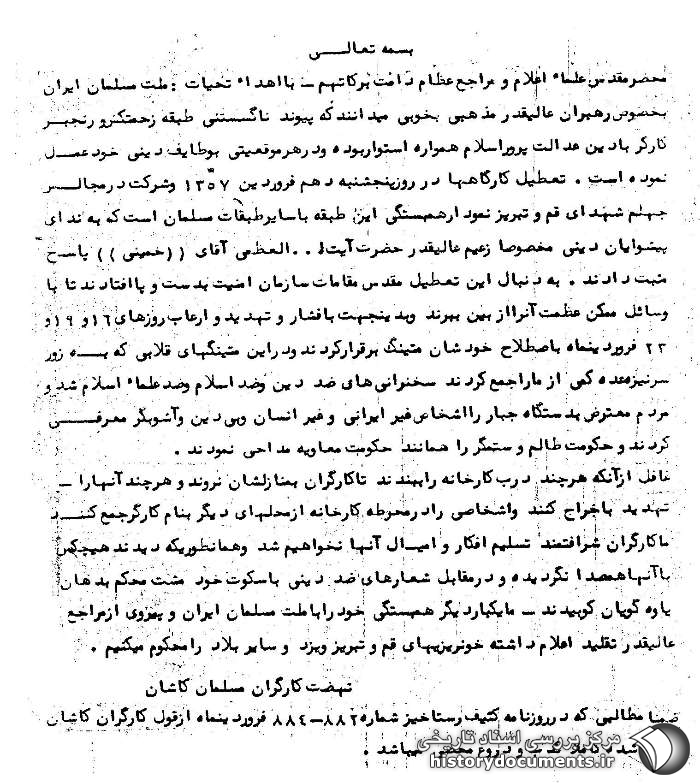 بسمه تعالی
محضر مقدس علماء اعلام و مراجع عظام دامت برکاتهم – با اهداء تحیات : ملت مسلمان ایران
بخصوص رهبران عالیقدر مذهبی بخوبی میدانند که پیوند ناگسستنی طبقه زحمتکش و رنجبر
کارگر با دین عدالت پرور اسلام همواره استوار بوده و در هر موقعیتی بوظایف دینی خود عمل
نموده است . تعطیل کارگاهها در روز پنجشنبه دهم فروردین ۱۳۵۷ و شرکت در مجالس
چهلم شهدای قم و تبریز نمودار همبستگی این طبقه با سایر طبقات مسلمان است که به ندای
پیشوایان دینی مخصوصا زعیم عالیقدر حضرت آیت ا . . العظمی آقای ((خمینی)) پاسخ
مثبت دادند . به دنبال این تعطیل مقدس مقامات سازمان امنیت بدست و پا افتادند تا با
وسائل ممکن عظمت آنرا از بین ببرند وبدینجهت با فشار و تهدید و ارعاب روزهای ۱۶ و ۱۹ و
۲۳ فروردینماه باصطلاح خودشان متینگ برقرار کردند و در این متینگهای قلابی که بــه زور
سرنیزه عده کمی از ما را جمع کردند سخنرانی های ضد دین وضد اسلام وضد علماء اسلام شد و
مردم معترض بدستگاه جبار را اشخاص غیر ایرانی و غیر انسان وبی دین و آشوبگر معرفــی
کردند و حکومت ظالم و ستمگر را همانند حکومت معاویه مداحی نمودند .
غافل از آنکه هرچند درب کارخانه را ببندند تا کارگران بمنازلشان نروند و هرچند آنها را –
تهدید باخراج کنند واشخاصی را در محوطه کارخانه از محلهای دیگر بنام کارگر جمع کنند
ما کارگران شرافتمند تسلیم افکار و امیال آنها نخواهیم شد وهمانطوریکه دیدند هیچکس
با آنها همصدا نگردیده و در مقابل شعارهای ضد دینی با سکوت خود مشت محکم بدهان
یاوه گویان کوبیدند – ما یکبار دیگر همبستگی خود را با ملت مسلمان ایران و پیروی از مراجع
عالیقدر تقلید اعلام داشته خونریزیهای قم و تبریز ویزد و سایر بلاد را محکوم میکنیم .
نهضت کارگران مسلمان کاشان
ضمنا مطالبی که در روزنامه کثیف رستاخیز شماره ۸۸۲–۸۸۴ فروردینماه از قول کارگران کاشان
شده کذب و دروغ محض میباشد .
مرکز بررسی اسناد تاریخی
historydocuments.ir